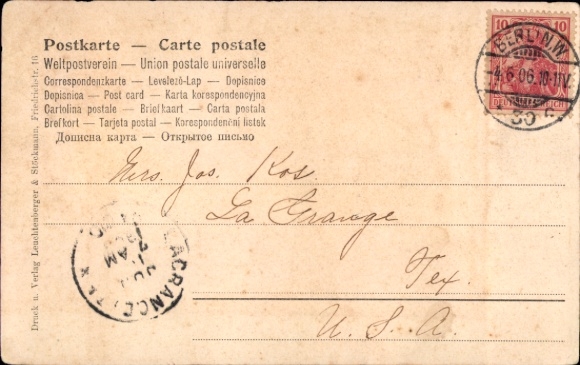 Postkarte — Carte postale
Weltpostverein — Union postale universelle
Correspondenzkarte — Levelező-Lap — Dopisnice
Dopisnica — Post card — Karta korespondencyjna
Cartolina postale — Briefkaart — Carta postala
Brefkort — Tarjeta postal — Korespondenční lístek
Дописна карта — Открытое письмо
10 10
DEUTSCHES REICH
BERLIN.W
4.6.06.10-11V.
30 c.
Mrs. Jos. Kos.
La Grange
Tex.
U. S. A.
LAGRANGE, TEX
7 AM
Druck u. Verlag Leuchtenberger & Stöckmann, Friedrichstr. 16